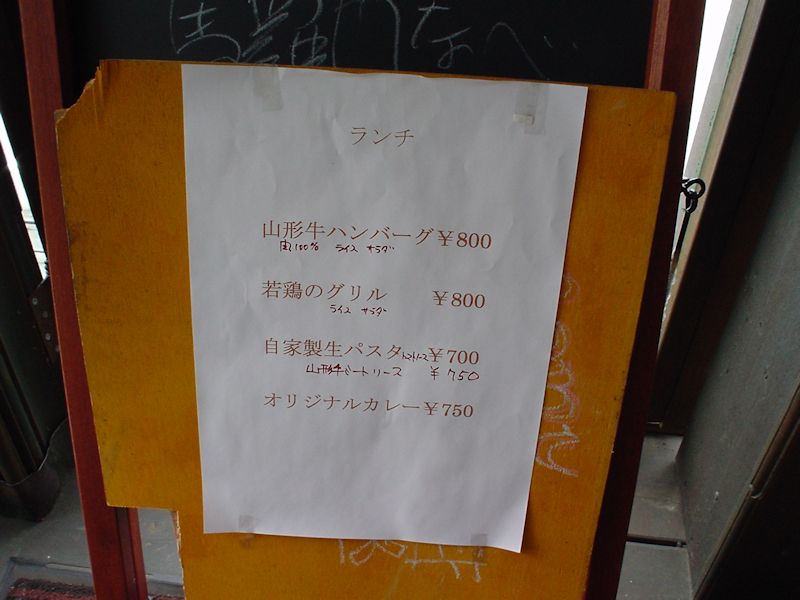 ランチ
山形牛ハンバーグ¥800
肉100% ライス サラダ
若鶏のグリル ¥800
ライス サラダ
自家製生パスタトマトソース¥700
山形牛ミートソース ¥750
オリジナルカレー¥750